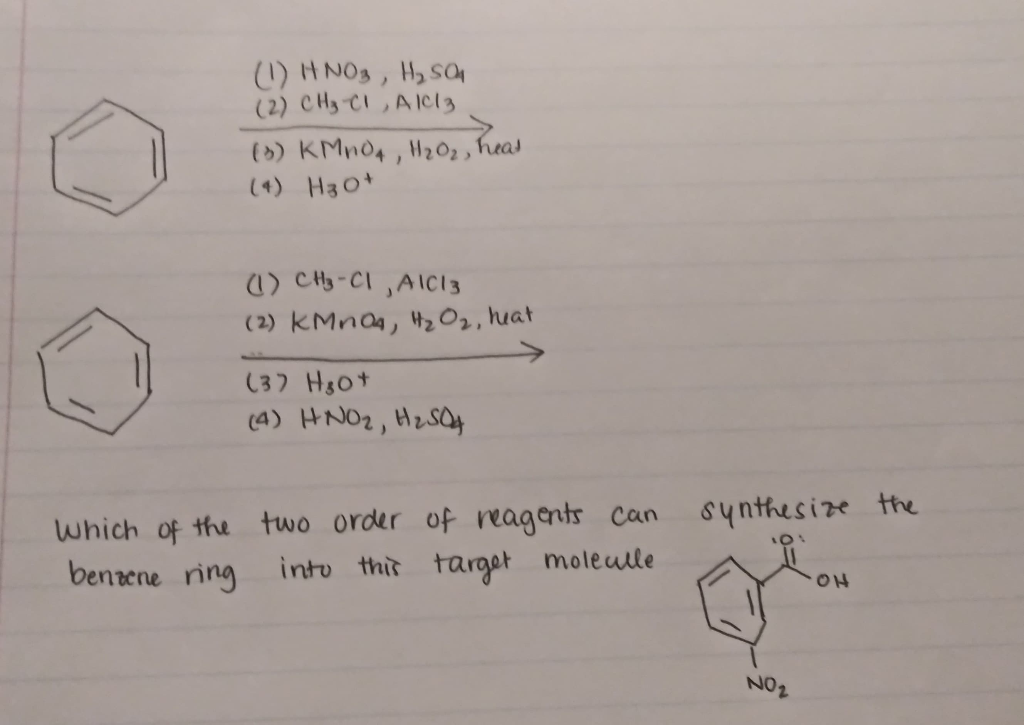 (1) HNO3, H2SO4
(2) CH3-Cl, AlCl3
(3) KMnO4, H2O2, heat
(4) H3O+
(1) CH3-Cl, AlCl3
(2) KMnO4, H2O2, heat
(3) H3O+
(4) HNO2, H2SO4
Which of the two order of reagents can synthesize the
benzene ring into this target moleculle
:O:
OH
NO2